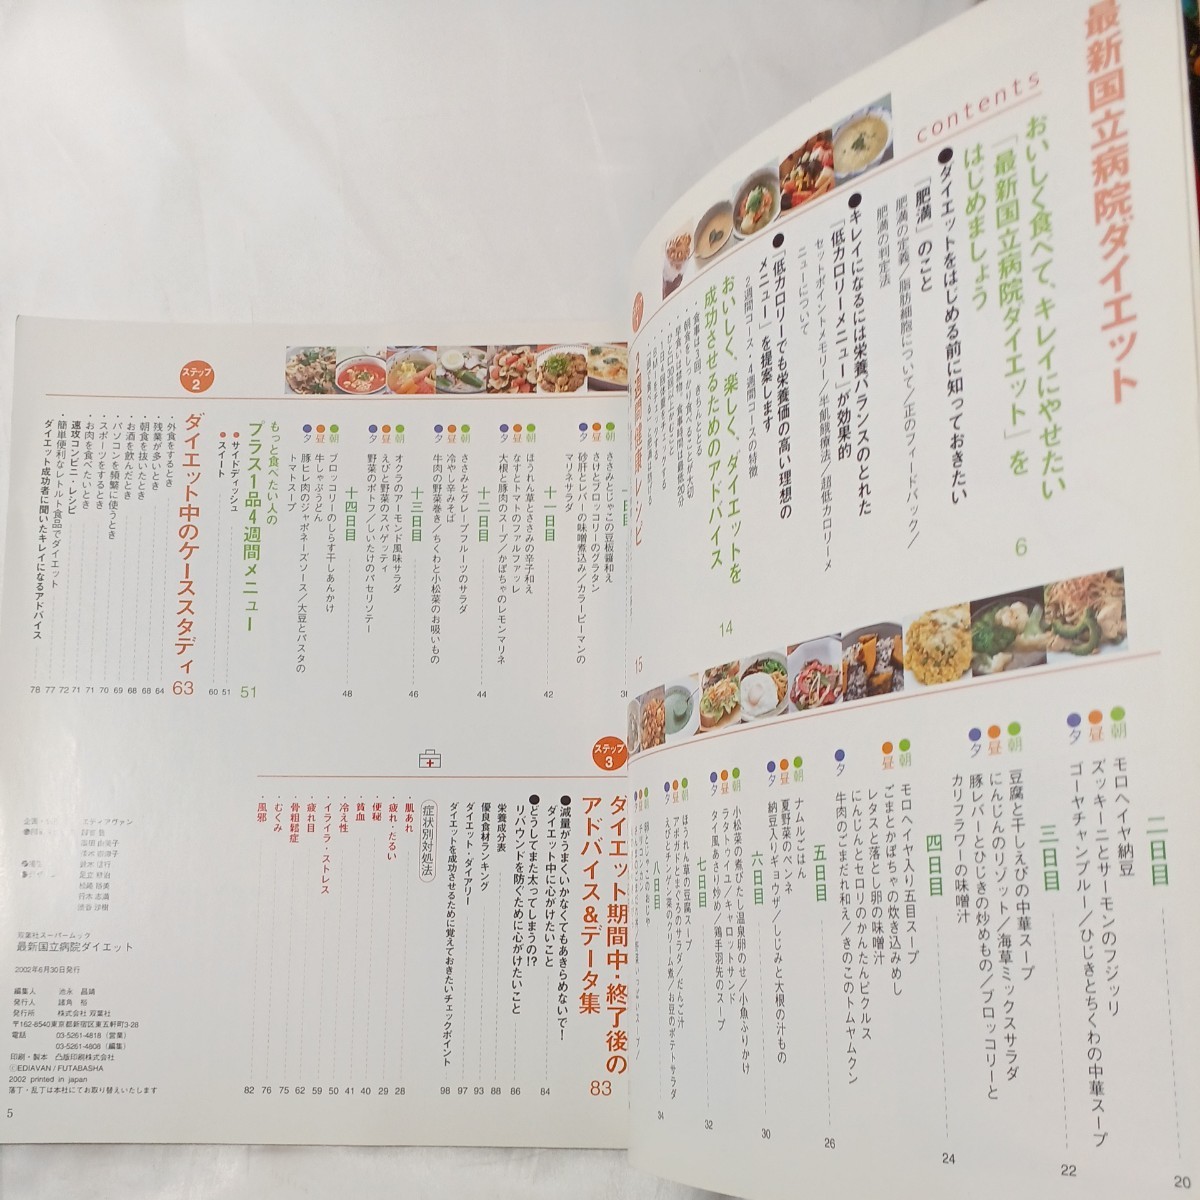 最新国立病院ダイエット
contents
おいしく食べて、キレイにやせたい
「最新国立病院ダイエット」を
はじめましょう
6
●ダイエットをはじめる前に知っておきたい
「肥満」のこと
肥満の定義／脂肪細胞について／正のフィードバック／
肥満の判定法
●キレイになるには栄養バランスのとれた
「低カロリーメニュー」が効果的
セットポイントメモリー／半飢餓療法／超低カロリーメ
ニューについて
●「低カロリーでも栄養価の高い理想の
メニュー」を提案します
2週間コース・4週間コースの特徴
おいしく、楽しく、ダイエットを
成功させるためのアドバイス
14
・食事は3回、きちんととる
15
二日目
20
●朝 モロヘイヤ納豆
●昼 ズッキーニとサーモンのフジッリ
●夕 ゴーヤチャンプルー／ひじきとちくわの中華スープ
三日目
22
●朝 豆腐と干しえびの中華スープ
●昼 にんじんのリゾット／海草ミックスサラダ
●夕 豚レバーとひじきの炒めもの／ブロッコリーと
カリフラワーの味噌汁
四日目
24
●朝 モロヘイヤ入り五目スープ
●昼 ごまとかぼちゃの炊き込みめし
レタスと落とし卵の味噌汁
にんじんとセロリのかんたんピクルス
●夕 牛肉のごまだれ和え／きのこのトムヤムクン
五日目
26
●朝 ナムルごはん
●昼 夏野菜のペンネ
●夕 納豆入りギョウザ／しじみと大根の汁もの
六日目
30
●朝 小松菜の煮びたし温泉卵のせ／小魚ふりかけ
●昼 ラタトゥイユ／キャロットサンド
●夕 タイ風あさり炒め／鶏手羽先のスープ
七日目
32
●朝 ほうれん草の豆腐スープ
●昼 アボガドとまぐろのサラダ／だんご汁
●夕 えびとチンゲン菜のクリーム煮／お豆のポテトサラダ
八日目
34
●朝 ささみとじゃこの豆板醤和え
●昼 さけとブロッコリーのグラタン
●夕 砂肝とレバーの味噌煮込み／カラーピーマンの
マリネサラダ
十一日目
42
●朝 ほうれん草とささみの辛子和え
●昼 なすとトマトのファルファッレ
●夕 大根と豚肉のスープ／かぼちゃのレモンマリネ
十二日目
44
●朝 ささみとグレープフルーツのサラダ
●昼 冷やし辛みそば
●夕 牛肉の野菜巻き／ちくわと小松菜のお吸いもの
十三日目
46
●朝 オクラのアーモンド風味サラダ
●昼 えびと野菜のスパゲッティ
●夕 野菜のポトフ／しいたけのパセリソテー
十四日目
48
●朝 ブロッコリーのしらす干しあんかけ
●昼 牛しゃぶうどん
●夕 豚ヒレ肉のジャポネーズソース／大豆とパスタの
トマトスープ
もっと食べたい人の
プラス1品4週間メニュー
51
●サイドディッシュ 51
●スイート 60
ステップ
2
ダイエット中のケーススタディ 63
・外食をするとき 64
・残業が多いとき 68
・朝食を抜いたとき 68
・お酒を飲んだとき 69
・パソコンを頻繁に使うとき 70
・スポーツをするとき 71
・お肉を食べたいとき 71
速攻コンビニ・レシピ 72
・簡単便利なレトルト食品でダイエット 77
ダイエット成功者に聞いたキレイになるアドバイス 78
ステップ
3
ダイエット期間中・終了後の
アドバイス&データ集
83
●減量がうまくいかなくてもあきらめないで!
ダイエット中に心がけたいこと 84
●どうしてまた太ってしまうの!?
リバウンドを防ぐために心がけたいこと 86
栄養成分表 88
優良食材ランキング 93
ダイエット・ダイアリー 97
ダイエットを成功させるために覚えておきたいチェックポイント 98
症状別対処法
肌あれ 28
疲れ・だるい 29
便秘 40
貧血 41
冷え性 50
イライラ・ストレス 59
疲れ目 62
骨粗鬆症 75
むくみ 76
風邪 82
双葉社スーパームック
最新国立病院ダイエット
2002年6月30日発行
編集人 池永 昌靖
発行人 諸角 裕
発行所 株式会社 双葉社
〒162-8540東京都新宿区東五軒町3-28
電話 03-5261-4818（営業）
03-5261-4808（編集）
印刷・製本 凸版印刷株式会社
ⒸEDIAVAN / FUTABASHA
2002 printed in japan
落丁・乱丁は本社にてお取り替えいたします
5